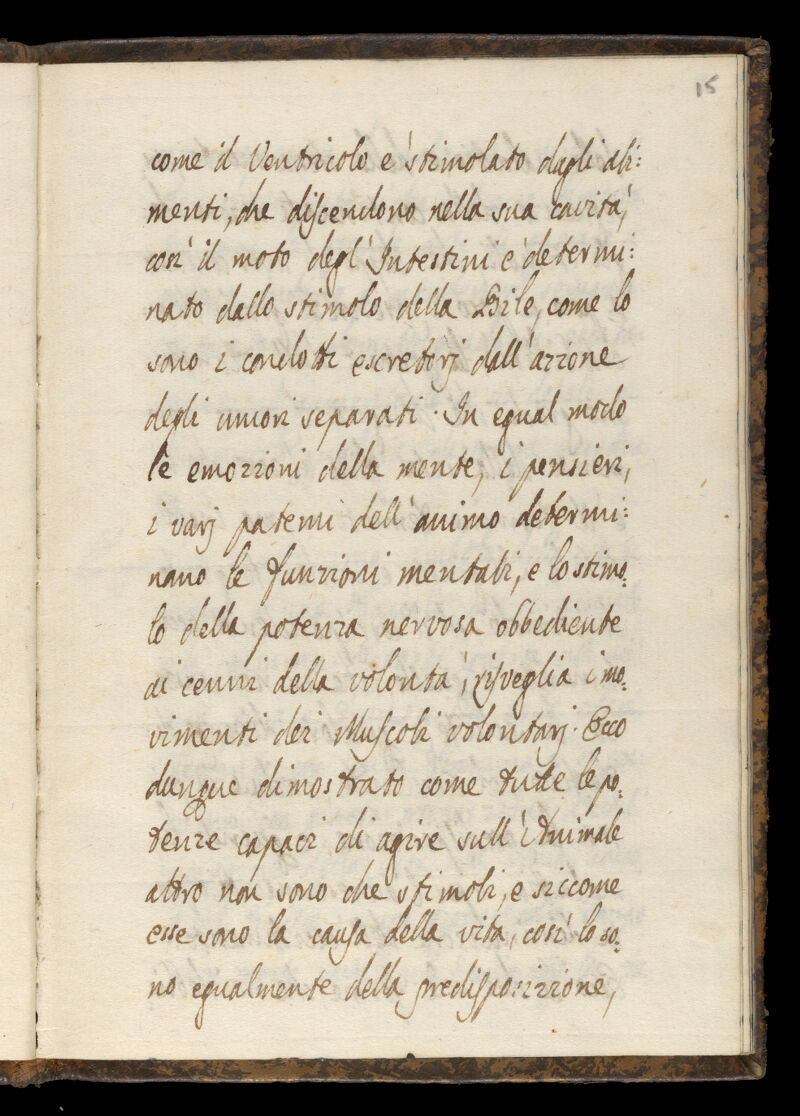 15
come il Ventricolo e' stimolato dagli ali:
menti, che discendono nella sua cavita',
cosi' il moto degl' Intestini e' determi:
nato dallo stimolo della Bile, come lo
sono i condotti escretorj dall' azione
degli umori separati. In egual modo
le emozioni della mente, i pensieri,
i varj patemi dell' animo determi:
nano le funzioni mentali, e lo stimo.
lo della potenza nervosa obbediente
ai cenni della volonta', risveglia i mo.
vimenti dei Muscoli volontarj. Ecco
dunque dimostrato come tutte le po.
tenze capaci di agire sull' Animale
altro non sono che stimoli, e siccome
esse sono la causa della vita, cosi' lo so.
no egualmente della predisposizione,